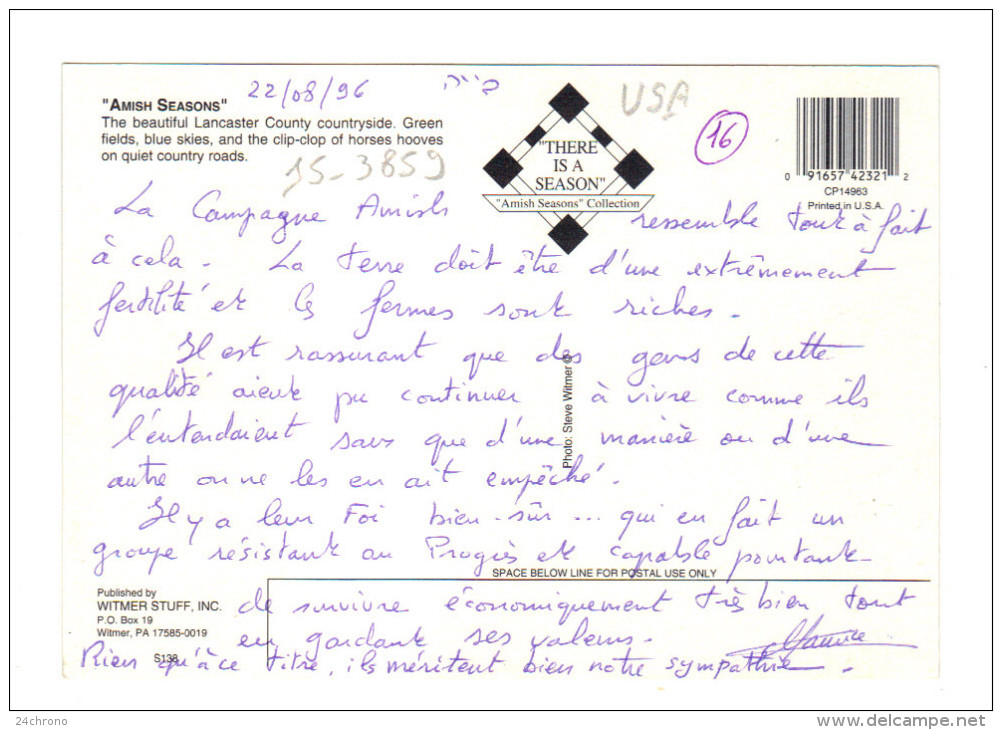 22/08/96
USA
16
"AMISH SEASONS"
The beautiful Lancaster County countryside. Green
fields, blue skies, and the clip-clop of horses hooves
on quiet country roads.
15-3859
"THERE
IS A
SEASON"
"Amish Seasons" Collection
0 91657 42321 2
CP14963
Printed in U.S.A.
La Campagne Amish ressemble tout à fait
à cela. La terre doit être d'une extrêmement
fertilité et les fermes sont riches.
Il est rassurant que des gens de cette
qualité aient pu continuer à vivre comme ils
l'entendaient sans que d'une manière ou d'une
autre on ne les en ait empêché.
Il y a leur Foi bien-sûr... qui en fait un
groupe résistant au Progrès et capable pourtant
de survivre économiquement très bien tout
en gardant ses valeurs.
Rien qu'à ce titre, ils méritent bien notre sympathie.
Photo: Steve Witmer ©
SPACE BELOW LINE FOR POSTAL USE ONLY
Published by
WITMER STUFF, INC.
P.O. Box 19
Witmer, PA 17585-0019
S138
24chrono
delcampe.net